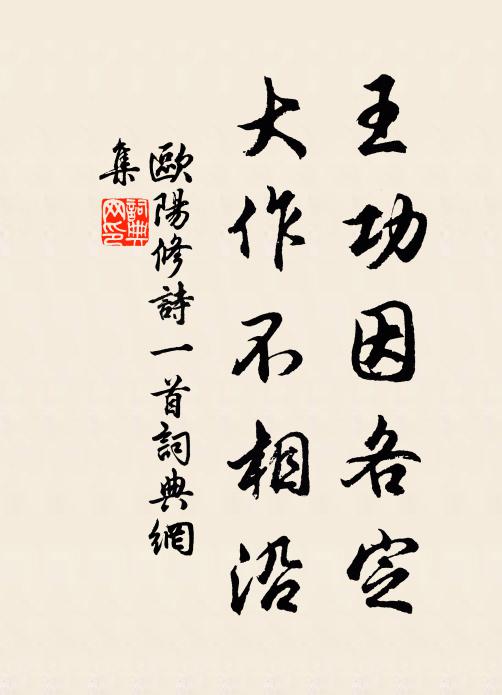 王功因各定
大作不相沿
歐陽修詩一首詞典網
集
詞典網印